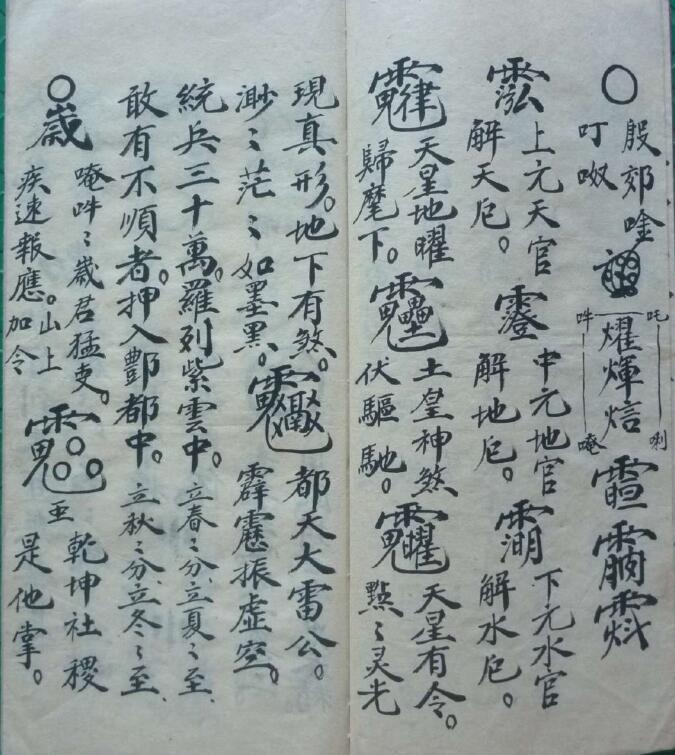 殷郊唫
叮
吒 唎
耀煇焙
吽 唵
上元天官
解天厄。
中元地官
解地厄。
下元水官
解水厄。
天星地曜
歸麾下。
土皇神煞
伏驅馳。
天星有令。
點〻灵光
現真形。地下有煞。
渺〻茫〻如墨黑。
都天大雷公。
霹靂振虛空。
統兵三十萬。羅列紫雲中。立春〻分、立夏〻至、
敢有不順者。押入酆都中。立秋〻分、立冬〻至、
歲
唵吽〻歲君猛吏。
疾速報應。山上加令
至
乾坤社稷
是他掌。